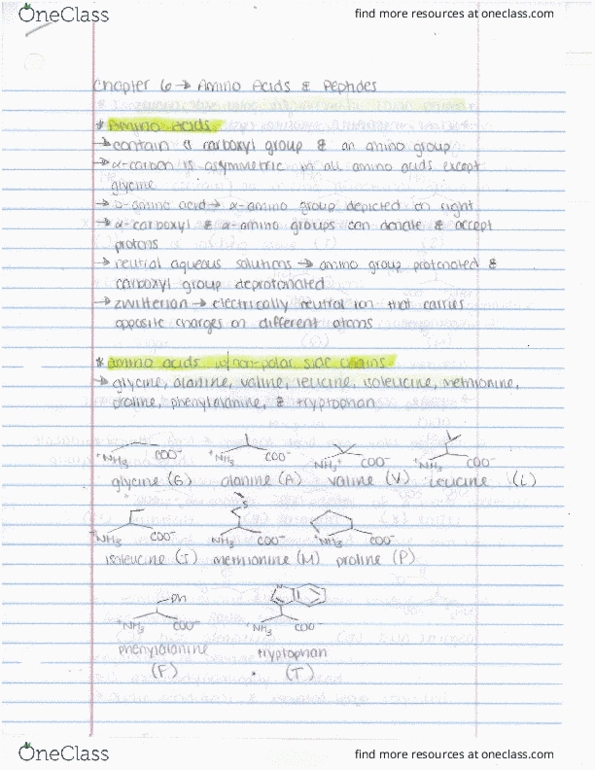 OneClass
find more resources at oneclass.com
Chapter 6 → Amino Acids & Peptides
* Amino Acids
→ contain a carboxyl group & an amino group
→ α-carbon is asymmetric in all amino acids except
glycine
→ D-amino acid → α-amino group depicted on right
→ α-carboxyl & α-amino groups can donate & accept
protons
→ neutral aqueous solutions → amino group protonated &
carboxyl group deprotonated
→ zwitterion → electrically neutral ion that carries
opposite charges on different atoms
* amino acids w/ non-polar side chains
→ glycine, alanine, valine, leucine, isoleucine, methionine,
proline, phenylalanine, & tryptophan
⁺NH₃ COO⁻ ⁺NH₃ COO⁻ NH₃⁺ COO⁻ ⁺NH₃ COO⁻
glycine (G) alanine (A) valine (V) leucine (L)
S
⁺NH₃ COO⁻ NH₃ COO⁻ NH₃ COO⁻
isoleucine (I) methionine (M) proline (P)
Ph
⁺NH₃ COO⁻ ⁺NH₃ COO⁻
phenylalanine tryptophan
(F) (T)
OneClass
find more resources at oneclass.com